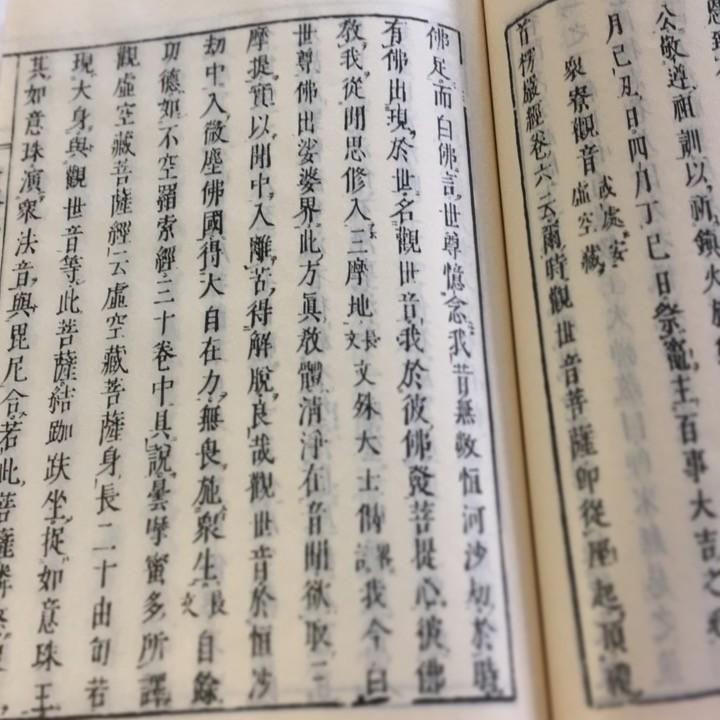 公敬遵祖訓以祈鎮火
月己丑日四月丁巳日祭竈主百事大吉
衆寮觀音或處安虛空藏
首楞嚴經卷六云爾時觀世音菩薩卽從座起頂禮
佛足而白佛言世尊憶念我昔無數恒河沙劫於時
有佛出現於世名觀世音我於彼佛發菩提心彼佛
敎我從聞思修入三摩地長文文殊大士偈畧我今白
世尊佛出娑婆界此方眞敎體淸淨在音聞欲取三
摩提實以聞中入離苦得解脫良哉觀世音於恒沙
劫中入微塵佛國得大自在力無畏施衆生長文自餘
功德如不空羂索經三十卷中具說曇摩蜜多所譯
觀虛空藏菩薩經云虛空藏菩薩身長二十由旬若
現大身與觀世音等此菩薩結跏趺坐捉如意珠王
其如意珠演衆法音與毘尼合若此菩薩